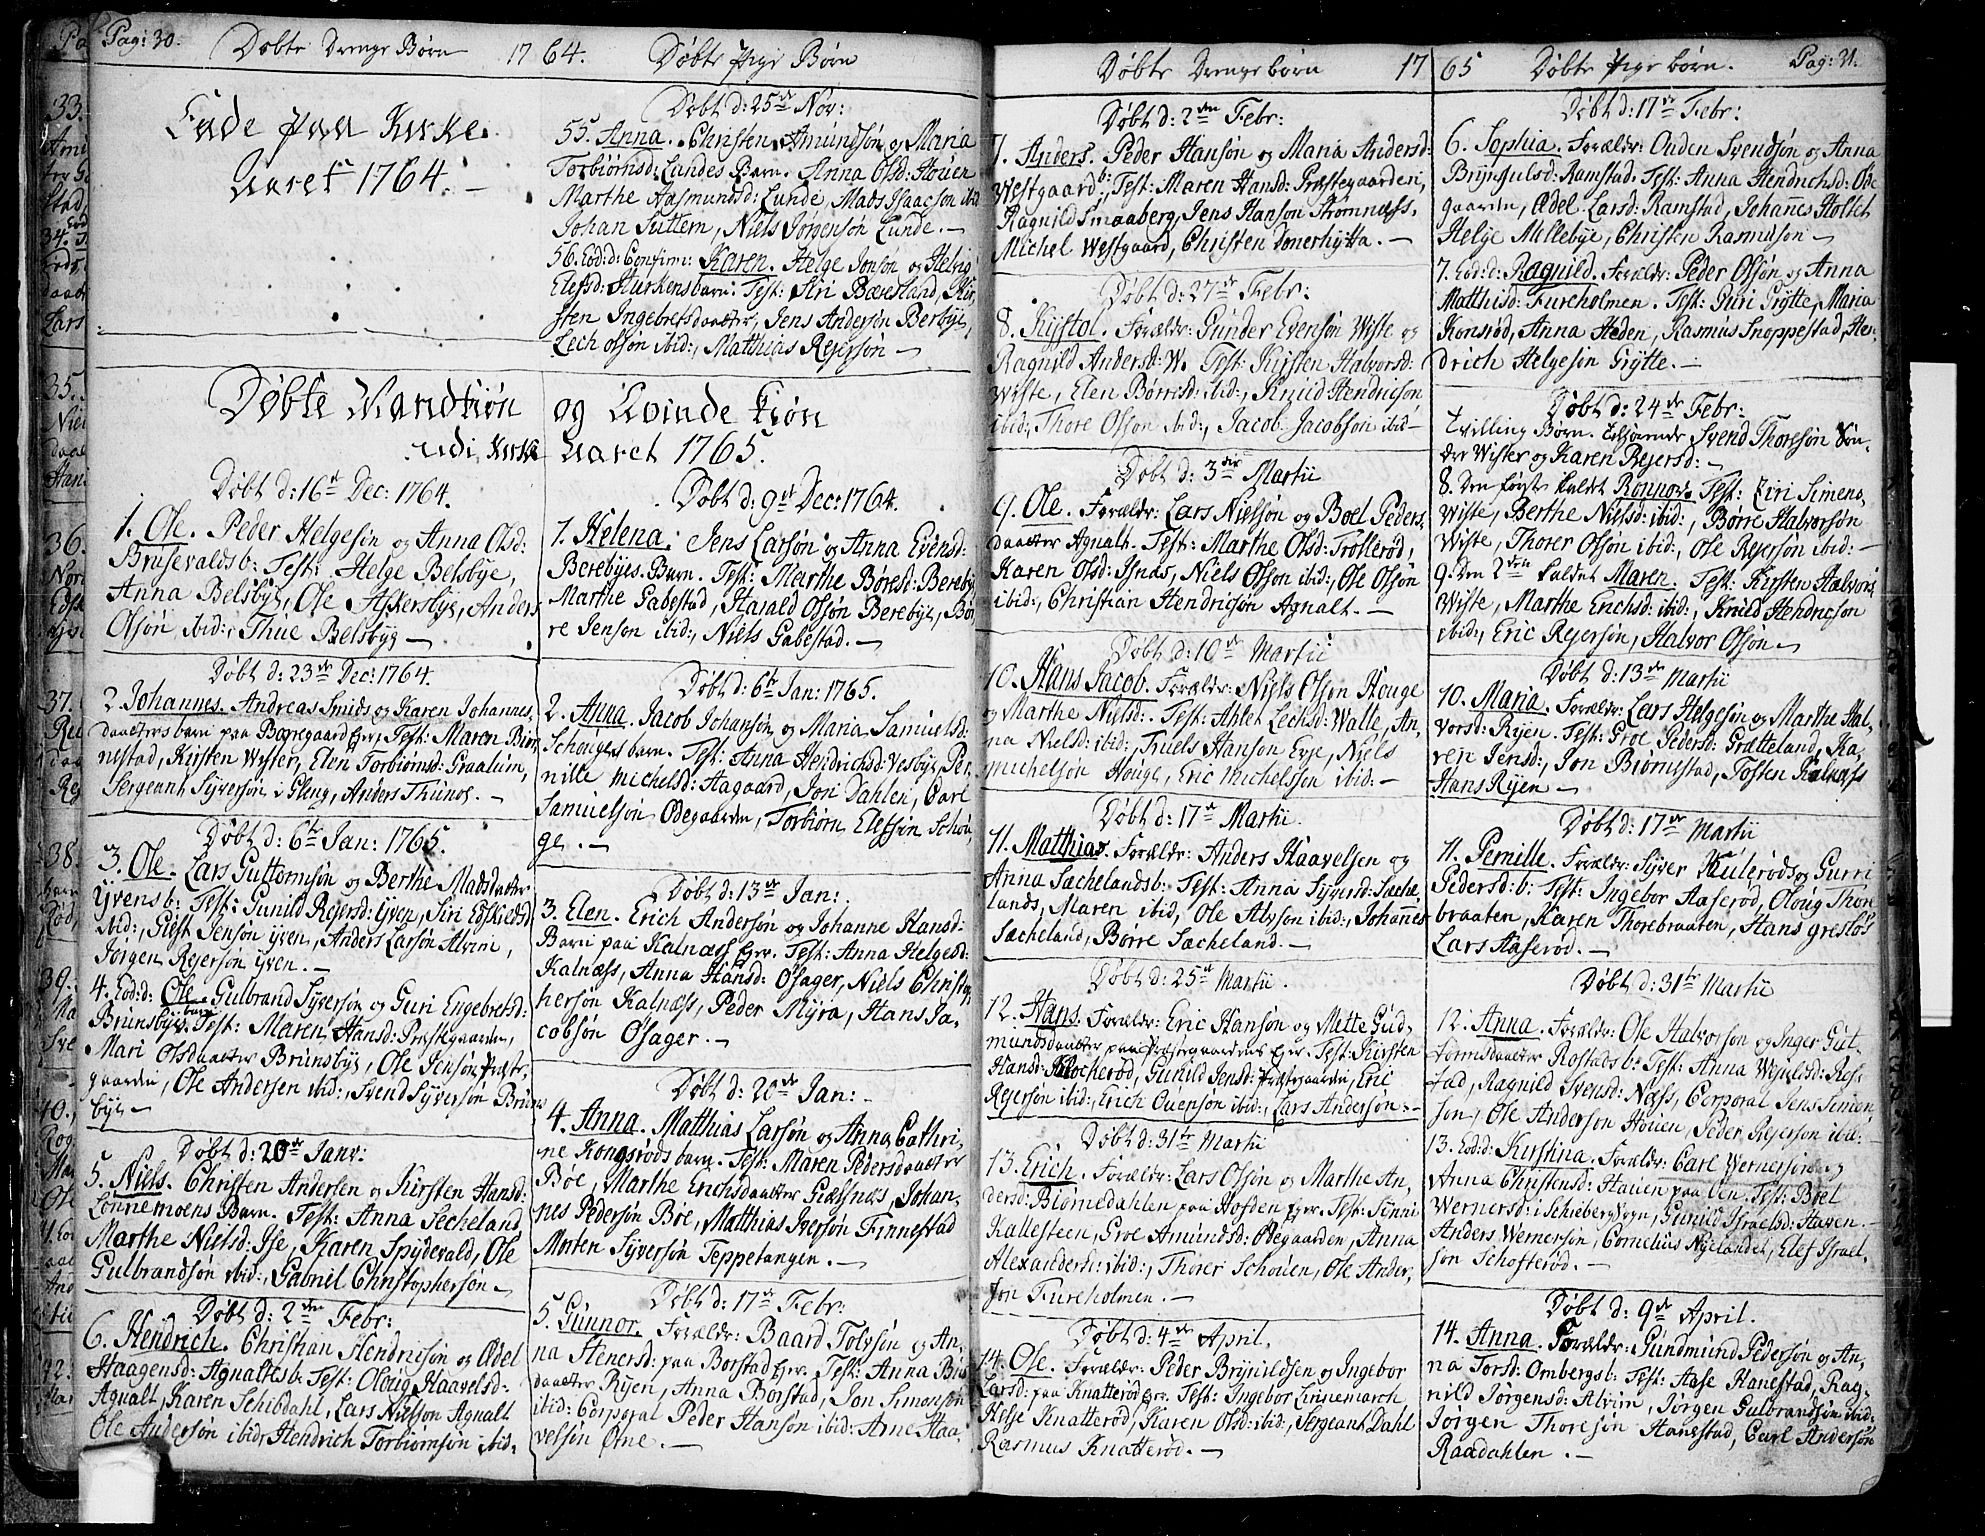 Pag: 30. Døbte Drenge Børn 1764. Døbte Pige Børn
Ende paa Kirke
Aaret 1764. –
Døbt d: 25de Nov:
55. Anna. Christen Amundsøn og Maria
Torbiørnsd: Lundes Barn. Anna Olsd: Houen
Marthe Aasmundsd: Lunde, Mads Isaacsøn ibid
Johan Suttern, Niels Jørgensøn Lunde. –
56. Eod: d: Confirm: Karen. Helge Jonsøn og Helvig
Elefsd: Hurkens barn. Test: Siri Bæresland, Kir-
sten Ingebretsdaatter, Jens Andersøn Berbye,
Lech Olsøn ibid:, Matthias Rejersøn –
Døbte Mandkiøn og Qvinde Kiøn
udi Kirke Aaret 1765.
Døbt d: 16de Dec: 1764.
1. Ole. Peder Helgesøn og Anna Olsd:
Brusevalds b: Test: Helge Belsbye,
Anna Belsbye, Ole Askersbye, Anders
Olsøn ibid:, Thue Belsbye –
Døbt d: 23de Dec: 1764.
2. Johannes. Andreas Smids og Karen Johannes-
daatters barn paa Borregaard Ejer, Test: Maren Biør
nestad, Kirsten Wister, Elen Torbiørnsd: Graalum,
Sergeant Syversøn i Gleng, Anders Thunoe. –
Døbt d: 6te Jan: 1765.
3. Ole. Lars Guttormsøn og Berthe Madsdaatter
Yvens b: Test: Gunild Rejersd: Yven, Siri Edskeldsd
ibid:, Giest Jensøn Yven, Anders Larsøn Alvim,
Jørgen Rejersøn Yven. –
4. Eod: d: Ole. Gulbrand Syversøn og Guri Engebretsd:
Brunsbyes barn Test: Maren Hansd: Præstegaarden,
Mari Olsdaatter Brunsbye, Ole Jensøn Præste-
gaarden, Ole Andersen ibid:, Svend Syversøn Bruns
bye –
Døbt d: 20de Janv:
5. Niels. Christen Andersen og Kirsten Hansd:
Lønnemoens Barn. Test: Anna Secheland
Marthe Nielsd: Ise, Karen Spydevald, Ole
Gulbrandsøn ibid:, Gabriel Christophersøn –
Døbt d: 2den Febr:
6. Hendrich. Christian Hendricsøn og Ædel
Haagensd: Agnaltes b: Test: Oloug Haavelsd:
Agnalt, Karen Schibdahl, Lars Nielson Agnalt
Ole Andersøn ibid, Hendrich Torbiørnsøn ibid.
Døbt d: 9de Dec: 1764.
1. Helena. Jens Larsøn og Anna Evensd:
Berebyes Barn. Test: Marthe Børesd: Bereby
Marthe Gabestad, Harald Olsøn Berebye, Bør
re Jensøn ibid:, Niels Gabestad. –
Døbt d: 6te Jan: 1765.
2. Anna. Jacob Johansøn og Maria Samuelsd:
Schonges barn. Test: Anna Hendrichsd: Vesbye, Per-
nille Michelsd: Hagaard, Jon Dahlen, Carl
Samuelsøn Ødegaarden, Torbiørn Elefsøn Schou
ge. –
Døbt d: 13de Jan:
3. Elen. Erich Andersøn og Johanne Hansd:
Barn paa Kalnæss Ejer. Test: Anna Helgesd:
Kalnæss, Anna Hansd: Osager, Niels Christop
hersøn Kalnæss, Peder Myra, Hans Ja-
cobsøn Osager. –
Døbt d: 20de Jan: –
4. Anna. Matthias Larsøn og Anna Cathri-
ne Kongsrøds barn. Test: Maren Pedersdaatter
Bøe, Marthe Erichsdaatter Giæssnæs, Johan-
nes Pedersøn Bøe, Matthias Iversøn Finnestad
Morten Syversøn Teppetangen. –
Døbt d: 17de Febr:
5. Gunnor. Forældr: Baard Tolvsøn og An-
na Stenersd: paa Borstad Ejer. Test: Anna Bus
daatter Ryen, Anna Borstad, Jon Simonsøn
ibid: Corporal Peder Hansøn ibid: Arne Haa-
velsøn Orne. –
Døbte Drengebørn 1765 Døbte Pige børn. Pag: 31.
Døbt d: 2den Febr:
7. Anders. Peder Hansøn og Maria Andersd:
Westgaards b:, Test: Maren Hansd: Præstegaarden,
Ragnild Smaaberg, Jens Hanson Strømnæss,
Michel Westgaard, Christen Domerhytta. –
Døbt d: 27de Febr:
8. Kystol. Forældr: Gunder Evensøn Wiste og
Ragnild Andersd: W. Test: Kirsten Halvorsd:
Wiste, Elen Børresd: ibid:, Knud Hendricsøn
ibid:, Thore Olsøn ibid:, Jacob Jacobsøn ibid –
Døbt d: 3die Martii
9. Ole. Forældr: Lars Nielsøn og Boel Peders
daatter Agnalt. Test: Marthe Olsd: Trollerød,
Karen Olsd: Isnæs, Niels Olsøn ibid:, Ole Olsøn
ibid:, Christian Hendricsøn Agnalt. –
Døbt d: 10de Martii
10. Hans Jacob. Forældr: Niels Olsøn Houge
og Marthe Nielsd:. Test: Ahlet Lechsd: Walle, An-
na Nielsd: ibid:, Truels Hansøn Evje, Niels
Michelsøn Houge, Eric Michelssen ibid: –
Døbt d: 17de Martii.
11. Matthias. Forældr: Anders Haavelsen og
Anna Sæchelands b: Test: Anna Syversd: Sæche
lands, Maren ibid, Ole Alvson ibid:, Johannes
Sæcheland, Børre Sæcheland. –
Døbt d: 25de Martii.
12. Hans. Forældr: Eric Hansøn og Mette Gud-
mundsdaatter paa Præstegaardens Ejer. Test: Kirsten
Hansd: Klocherød, Gunild Jensd: Præstegaarden, Eric
Rejersøn ibid:, Erich Ouensøn ibid:, Lars Andersøn. –
Døbt d: 31te Martii
13. Erich. Forældr: Lars Olsøn og Marthe An-
dersd: Biørnedahlen paa Hofden Ejer. Test: Sinni
Kallesteen, Groe Amundsd: Ødegaarden, Anna
Alexandersd: ibid:, Thorer Schouen, Ole Ander-
søn Fureholmen. –
Døbt d: 4de April.
14. Ole. Forældr: Peder Brynildsen og Ingebor
Larsd: paa Knatterød Ejer. Test: Ingebor Linnemarch
Helje Knatterød, Karen Olsd: ibid:, Sergeant Dahl
Rasmus Knatterød. –
Døbt d: 17de Febr:
6. Sophia. Forældr: Ouden Svendsøn og Anna
Brynjulsd: Ramstad. Test: Anna Hendrichsd: Øde
gaarden, Ædel Larsd: Ramstad, Johannes Holtet
Helje Millebye, Christen Rasmusøn –
7. Eod: d: Ragnild. Forældr: Peder Olsøn og Anna
Matthisd: Fureholmen. Test: Guri Grytte, Maria
Konsrød, Anna Heden, Rasmus Snoppestad, Hen-
drich Helgesøn Grytte. –
Døbt d: 24de Febr:
Tvilling Børn. Svend Thoresøn Søn-
dre Wister og Karen Rejersd: –
8. Den første kaldet Ronnov. Test: Ziri Simens,
Wiste, Berthe Nielsd: ibid:, Børre Halvorsøn
Wiste, Thorer Olsøn ibid:, Ole Rejersøn ibid: –
9. Den 2den kaldet Maren. Test: Kirsten Halvors
Wiste, Marthe Erichsd: ibid:, Knud Hendricsøn
ibid:, Eric Rejersøn, Halvor Olsøn –
Døbt d: 13de Martii
10. Maria. Forældr: Lars Helgesøn og Marthe Hal-
vorsd: Ryen. Test: Groe Pedersd: Gratteland, Ka-
ren Jensd:, Jon Biørnestad, Tosten Kalnæss
Hans Ryen –
Døbt d: 17de Martii
11. Pernille. Forældr: Syver Kulerøds og Gurri
Pedersd: b: Test: Ingebor Aaserød, Oloug Thore
braaten, Karen Thorebraaten, Hans Gresløs
Lars Aaserød. –
Døbt d: 31te Martii
12. Anna. Forældr: Ole Halvorsøn og Inger Gut-
tormsdaatter Rostads b: Test: Anna Wjulsd: Ros-
tad, Ragnild Svensd: Næss, Corporal Jens Simon
søn, Ole Andersøn Houen, Peder Rejersøn ibid:
13. Eod: d: Kirstina. Forældr: Carl Wernersøn og
Anna Christensd: Hauen paa Øen. Test: Boel
Wernersd: i Schieberg Sogn, Gunild Israelsd: Haven.
Anders Wernersøn, Cornelius Nyelandet, Elef Israel
søn Schofterød. –
Døbt d: 9de April.
14. Anna. Forældr: Gundmund Pedersøn og An-
na Torsd: Ombergs b: Test: Aase Hanestad, Rag-
nild Jørgensd: Alvim, Jørgen Gulbrandsøn ibid:
Jørgen Thoresøn Hanestad, Carl Andersøn
Raadahlen. –